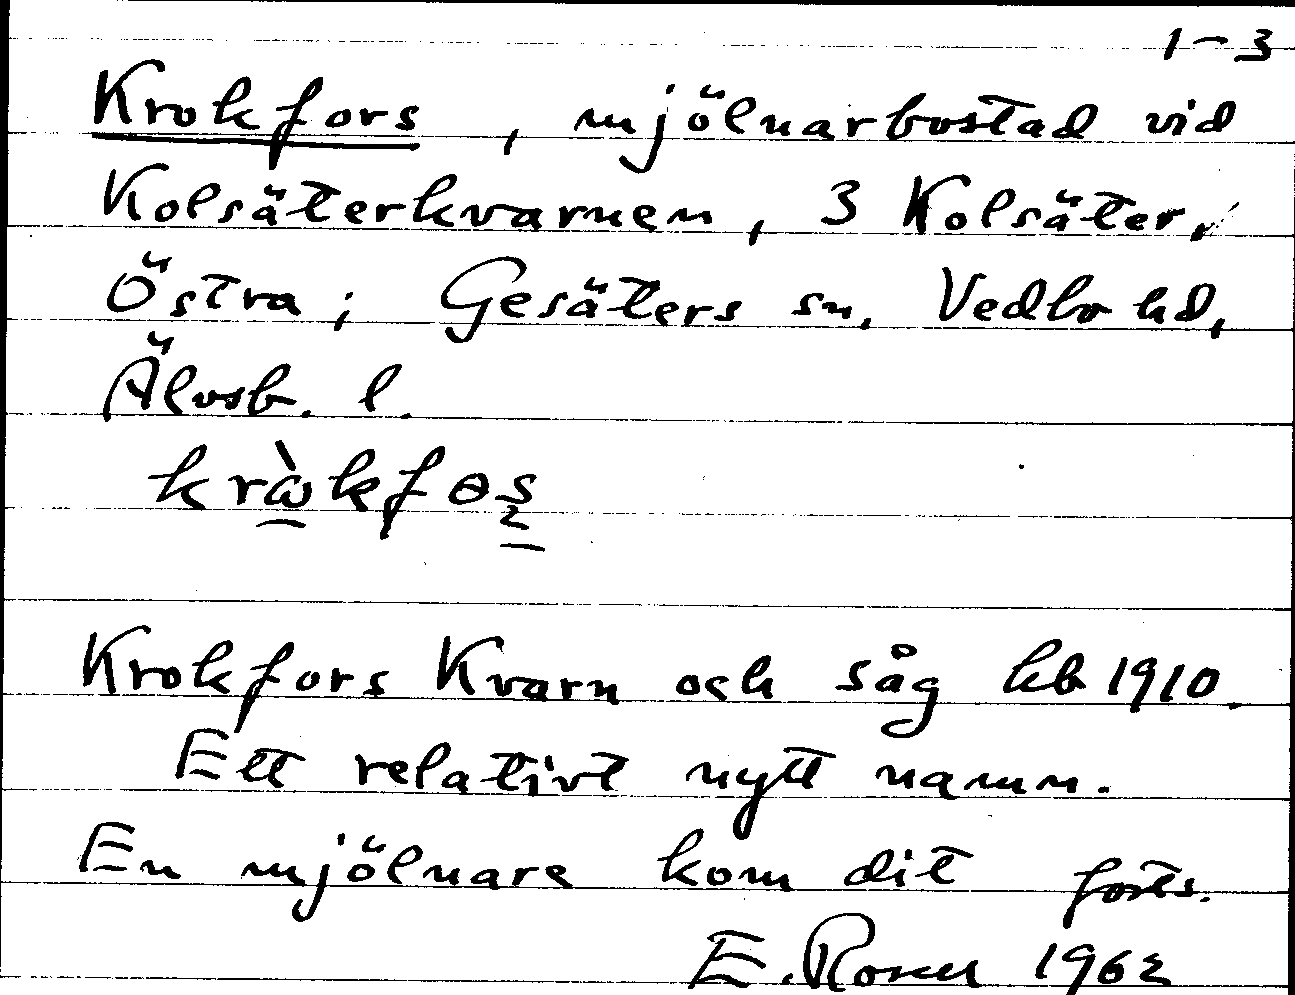 1-3
Krokfors, mjölnarbostad vid
Kolsäterkvarnen, 3 Kolsäter,
Östra; Gesäters sn, Vedbo hd,
Älvsb. l.
Krokfors Kvarn och såg hb 1910.
Ett relativt nytt namn.
En mjölnare kom dit forts.
E. Rosell 1962